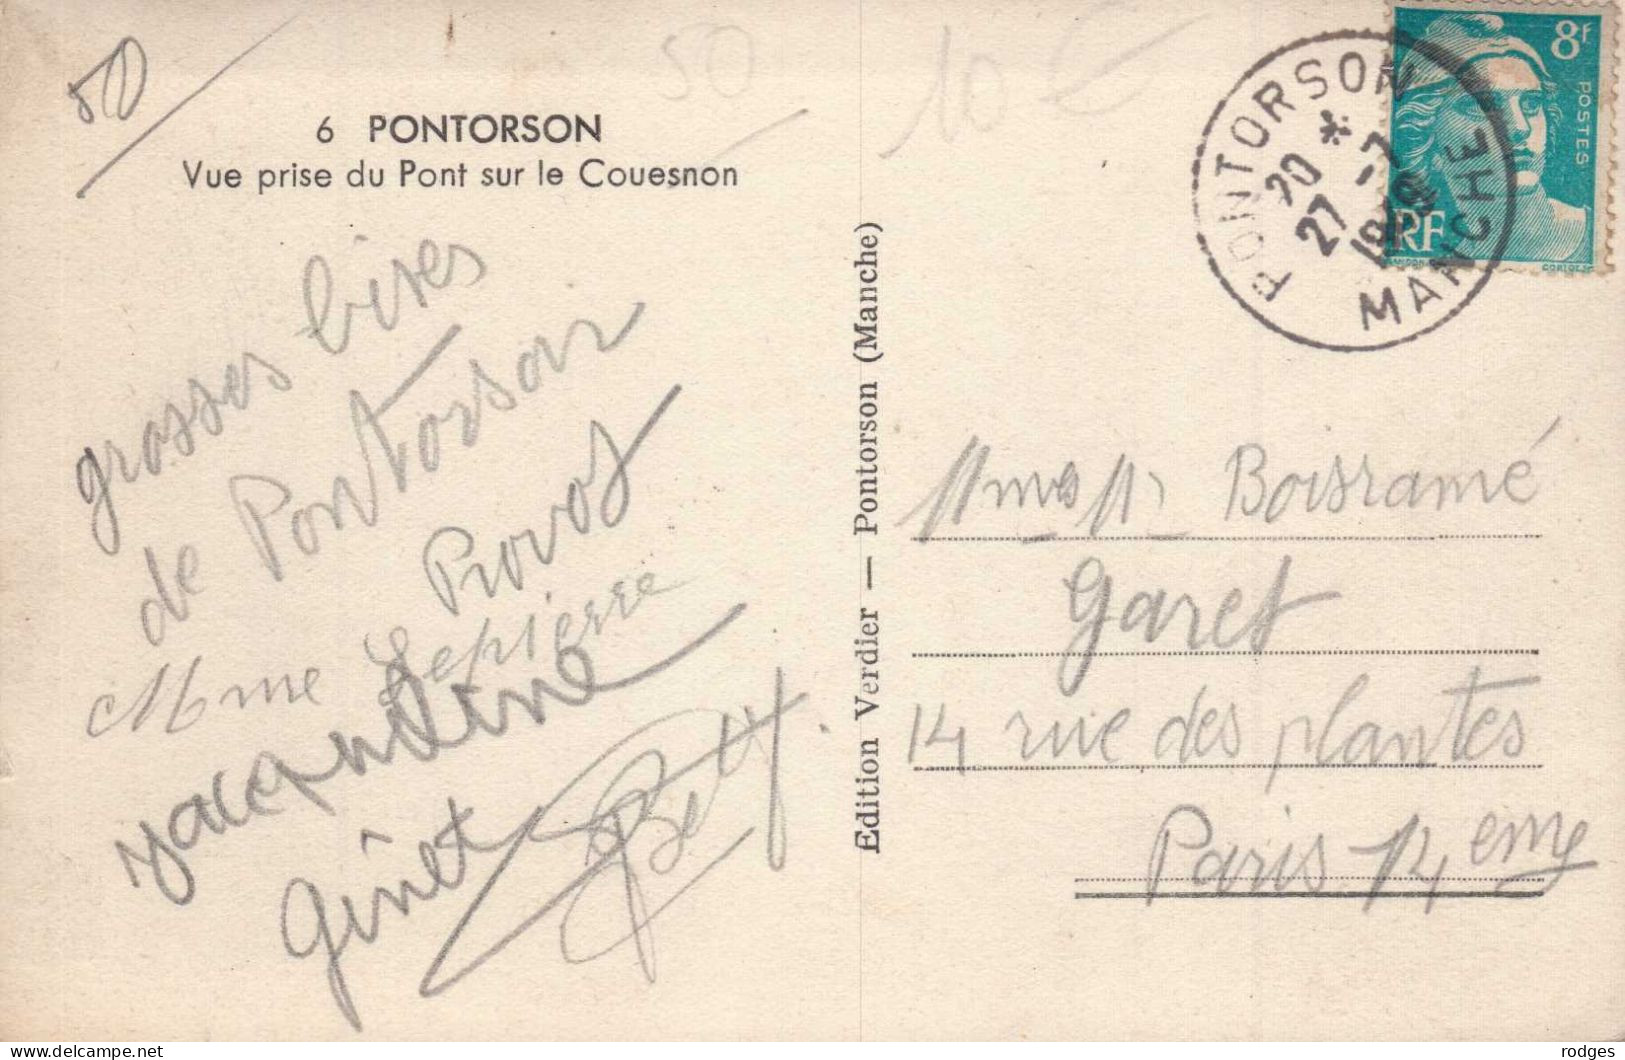 50
50
10 €
6 PONTORSON
Vue prise du Pont sur le Couesnon
grosses bises
de Pontorson
Provost
Mme Lepierre
Jacqueline
Ginet
Edition Verdier — Pontorson (Manche)
PONTORSON
20 *
27 - 7
MANCHE
8F
POSTES
RF
GANDON
CORTOT SC
Boisramé
Garet
14 rue des plantes
Paris 14 eme
delcampe.net
rodges